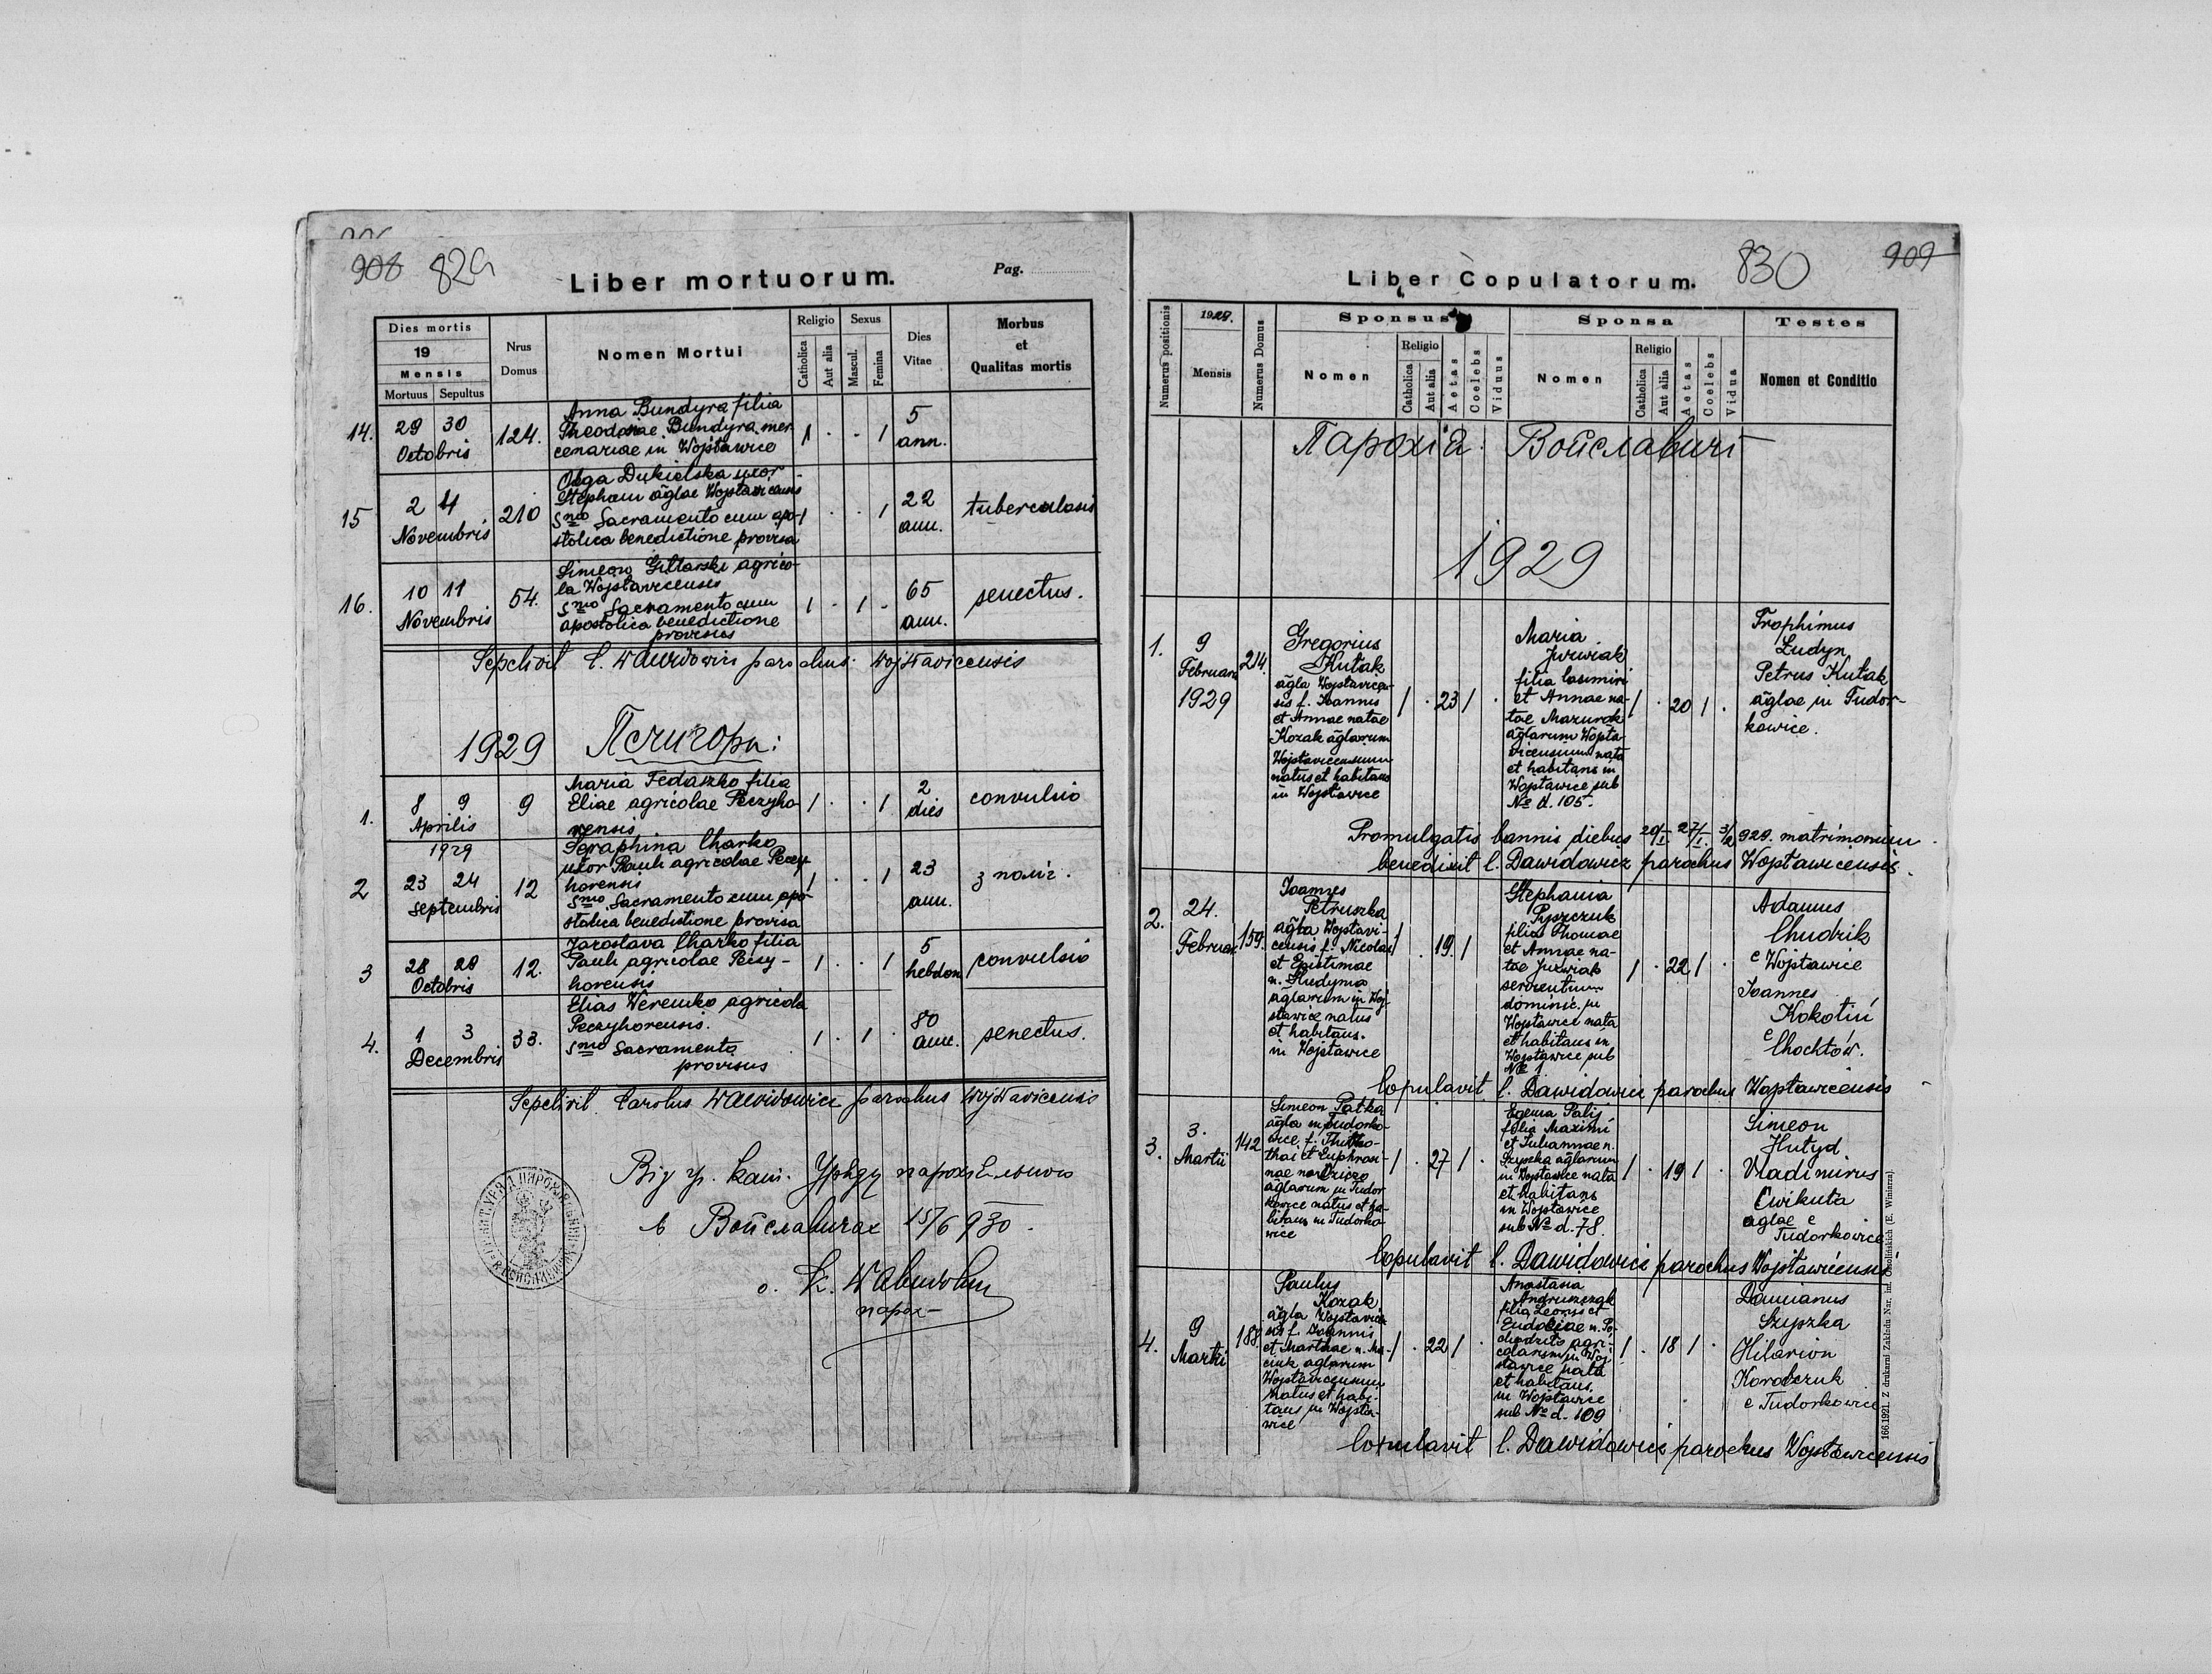 908 829
Liber mortuorum.
Pag.
Dies mortis
19
Mensis
Mortuus Sepultus
Nrus Domus
Nomen Mortui
Religio
Catholica
Aut alia
Sexus
Mascul.
Femina
Dies Vitae
Morbus
et
Qualitas mortis
14. 29 30 Octobris 124.
Anna Bundyra filia
Theodosiae Bundyra mer
cenariae in Wojsławice
1 · · 1
5 ann.
15 2 4 Novembris 210
Olga Dukielska uxor
Stephani agłae Wojsławicensis
Smo Sacramento cum apo-
stolica benedictione provisa
1 · · 1
22 ann.
tuberculosis
16. 10 11 Novembris 54.
Simeon Gittarski agrico-
la Wojsławicensis
Smo Sacramento cum
apostolica benedictione
provisus
1 · 1 ·
65 ann.
senectus.
Sepelivit C. Dawidowicz parochus Wojsławicensis
1929 Печигори:
1. 8 9 Aprilis 1929 9
Maria Fedaszko filia
Eliae agricolae Peczyho-
rensis
1 · · 1
2 dies
convulsio
2 23 24 Septembris 12
Seraphina Charko
uxor Pauli agricolae Peczy
horensis
Smo Sacramento cum apo-
stolica benedictione provisa
1 · · 1
23 ann.
з поліг.
3 28 29 Octobris 12.
Jaroslava Charko filia
Pauli agricolae Peczy-
horensis
1 · · 1
5 hebdom
convulsio
4. 1 3 Decembris 33.
Elias Weremko agricola
Peczyhorensis.
Smo Sacramento
provisus
1 · 1 ·
80 ann.
senectus.
Sepelivit Carolus Dawidowicz parochus Wojsławicensis
Від гр. кат. Уряду парохіяльного
в Войславичах 15/6 930.
о. К. Давидович
парох
830 909
Liber Copulatorum.
Numerus positionis
1929.
Mensis
Numerus Domus
Sponsus
Nomen
Religio
Catholica
Aut alia
Aetas
Coelebs
Viduus
Sponsa
Nomen
Religio
Catholica
Aut alia
Aetas
Coelebs
Vidua
Testes
Nomen et Conditio
Парохія: Войславичі
1929
1. 9 Februarii 1929 214.
Gregorius
Kutak
agła Wojsławicen-
sis f. Joannis
et Annae natae
Kozak agłarum
Wojsławicensium
natus et habitans
in Wojsławice
1 · 23 1 ·
Maria
Jurwiak
filia Casimiri
et Annae na-
tae Mazurok
agłarum Wojsła-
vicensium nata
et habitans in
Wojsławice sub
No d. 105.
1 · 20 1 ·
Trophimus
Ludyn
Petrus Kutak
agłae in Tudor-
kowice.
Promulgatis bannis diebus 20/I. 27/I. 3/2 929. matrimonium
benedixit C. Dawidowicz parochus Wojsławicensis.
2. 24. Februar. 159.
Joannes
Petruszka
agła Wojsławi-
censis f. Nicolai
et Epistimae
n. Hudyma
agłarum in Woj-
sławice natus
et habitans.
in Wojsławice
1 · 19. 1
Stephania
Pyszczuk
filia Thomae
et Annae na-
tae Jurwiak
servientium
dominic. in
Wojsławice nata
et habitans in
Wojsławice sub
No 1
1 · 22 1 ·
Adamus
Chudzik
e Wojsławice
Joannes
Kokotiń
e Chochłów.
Copulavit C. Dawidowicz parochus Wojsławicensis
3. 3. Martii 142
Simeon Patka
agła in Tudorko-
wice
agłarum in Tudor
kowice natus et ha-
bitans in Tudorko
wice
1 · 27 1 ·
Palij
filia Maximi
et Juliannae n.
Szyszka agłarum
in Wojsławice nata
et habitans
in Wojsławice
sub No d. 78.
1 · 19 1 ·
Simeon
Hutyd
Vladimirus
Cwikuta
agłae e
Tudorkowice
Copulavit C. Dawidowicz parochus Wojsławicensis
4. 9 Martii 188.
Paulus
Kozak
agła Wojsławicen
sis f. Joannis
et Marthae n. Ma-
ciuk agłarum
Wojsławicensium
natus et habi-
tans in Wojsła-
wice
1 · 22 1 ·
Anastasia
Andruszczak
filia Leonis et
Eudociae
sławice nata
et habitans.
in Wojsławice
sub No d. 109
1 · 18 1 ·
Damianus
Szyszka
Hilarion
Korobczuk
e Tudorkowice
Copulavit C. Dawidowicz parochus Wojsławicensis
166.1921. Z drukarni Zakładu Nar. im. Ossolińskich (E. Winiarza)